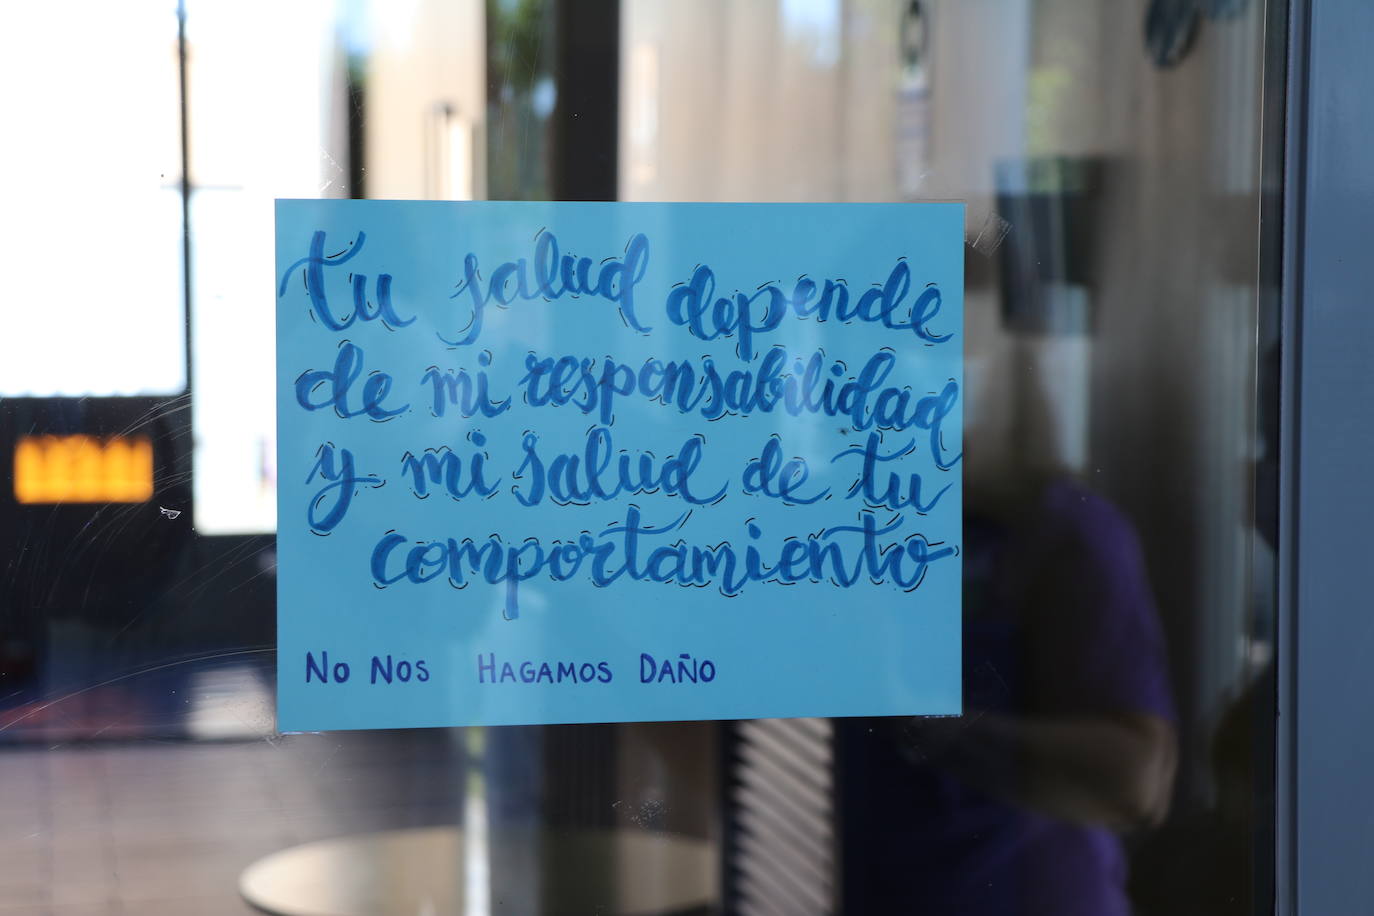 tu salud depende
de mi responsabilidad
y mi salud de tu
comportamiento
No Nos Hagamos Daño